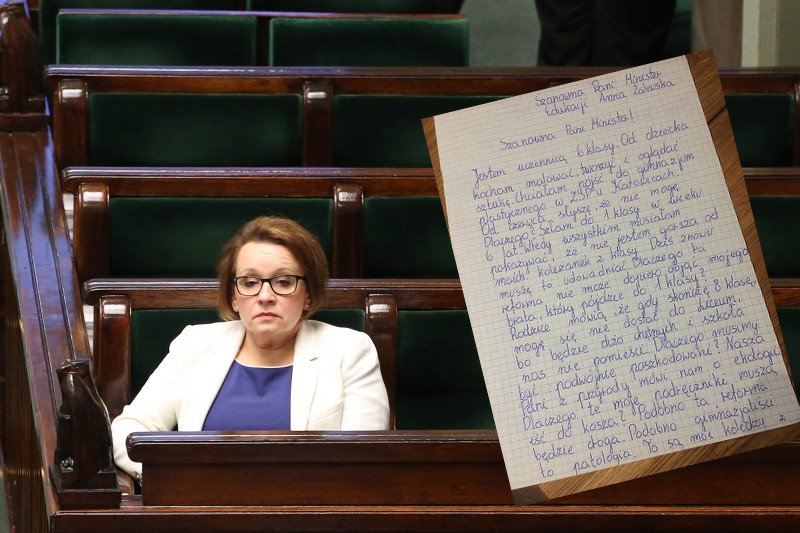 Szanowna Pani Minister
Edukacji Anna Zalewska
Szanowna Pani Minister!
Jestem uczennicą 6 klasy. Od dziecka
kocham malować, tworzyć i oglądać
sztukę. Chciałam pójść do gimnazjum
plastycznego w ZSP w Katowicach.
Od czerwca słyszę, że nie mogę.
Dlaczego? Szłam do 1 klasy w wieku
6 lat, wtedy wszystkim musiałam
pokazywać, że nie jestem gorsza od
moich koleżanek z klasy. Dziś znowu
muszę to udowadniać. Dlaczego ta
reforma nie może dopiero objąć mojego
brata, który pójdzie do 1 klasy?
Rodzice mówią, że gdy skończę 8 klasę,
mogę się nie dostać do liceum,
bo będzie dużo innych i szkoła
nas nie pomieści. Dlaczego musimy
być podwójnie poszkodowane? Nasza
Pani z przyrody mówi nam o ekologii.
Dlaczego te moje podręczniki muszą
iść do kosza? Podobno ta reforma
będzie droga. Podobno gimnazjaliści
to patologia. To są moi koledzy z